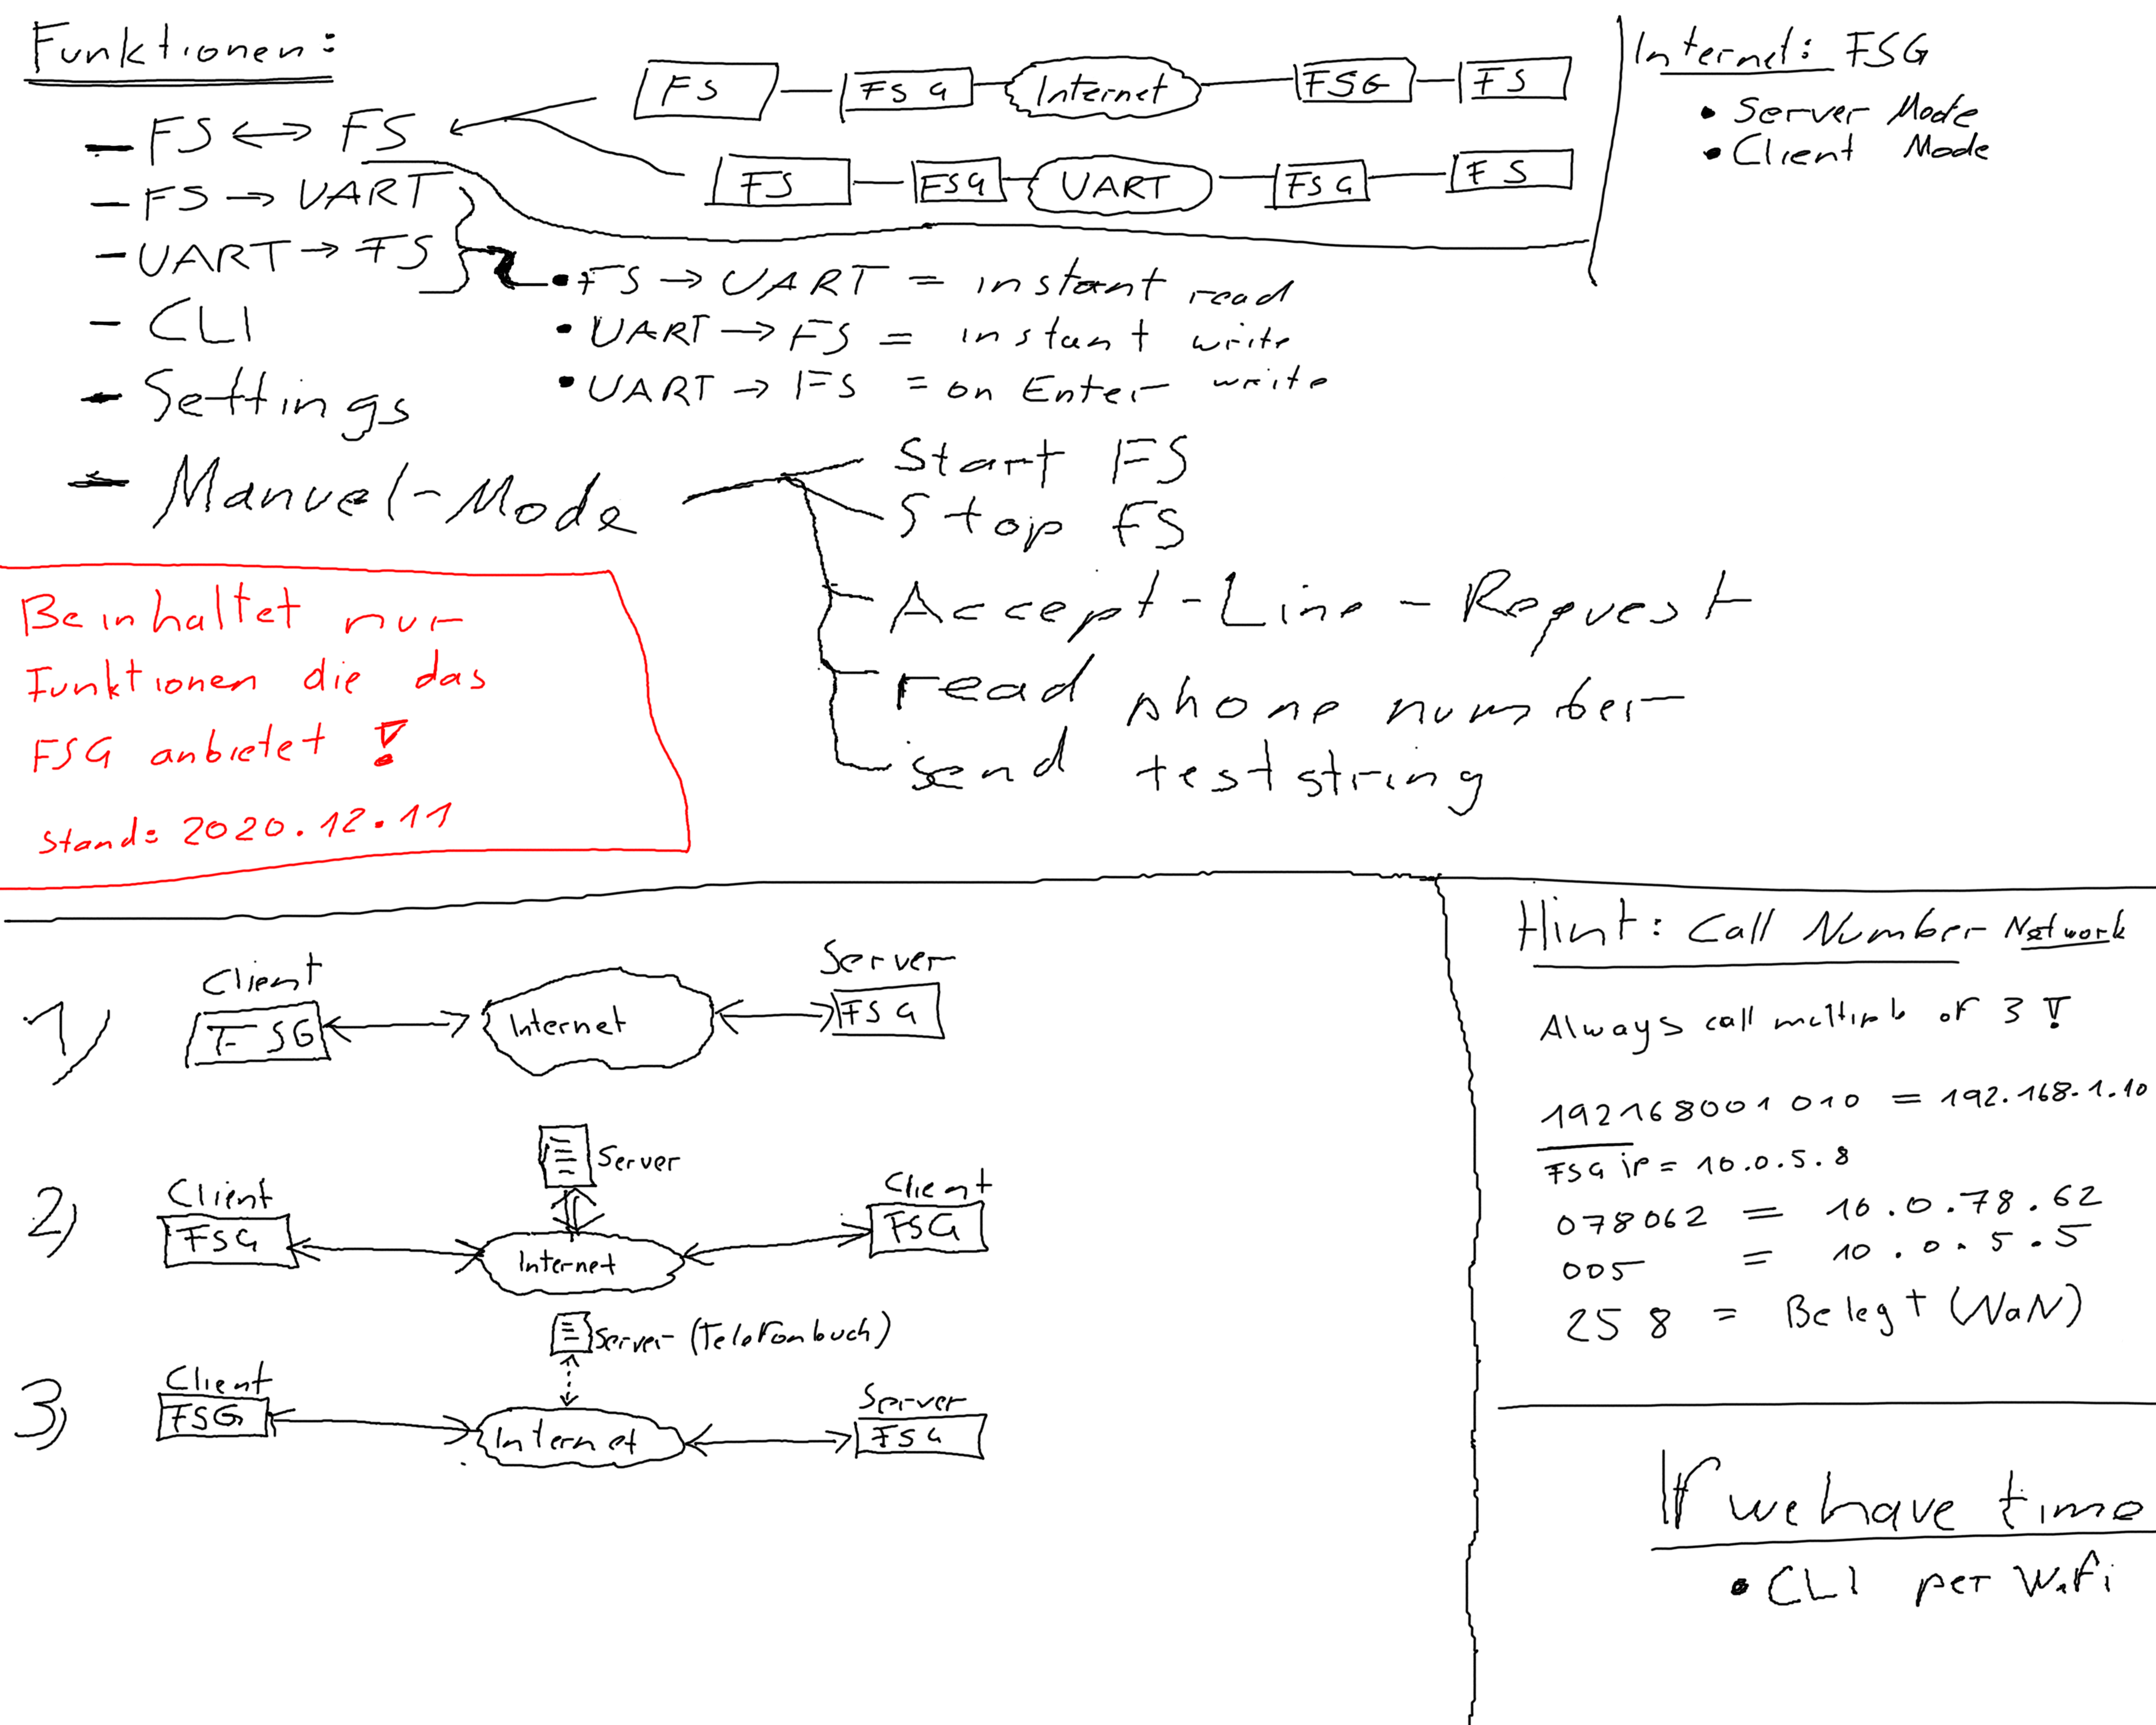 Funktionen:
- FS <-> FS
- FS -> UART
- UART -> FS
- CLI
- Settings
- Manuel-Mode
FS FSG Internet FSG FS
FS FSG UART FSG FS
Internet: FSG
• Server Mode
• Client Mode
• FS -> UART = instant read
• UART -> FS = instant write
• UART -> FS = on Enter write
Start FS
Stop FS
Accept-Line-Request
read phone number
send teststring
Beinhaltet nur
Funktionen die das
FSG anbietet !
Stand: 2020.12.11
1)
Client
FSG
Internet
Server
FSG
2)
Server
Client
FSG
Internet
Client
FSG
3)
Server (Telefonbuch)
Client
FSG
Internet
Server
FSG
Hint: Call Number Network
Always call multiple of 3 !
192168001010 = 192.168.1.10
FSG ip = 10.0.5.8
078062 = 10.0.78.62
005 = 10.0.5.5
258 = Belegt (NaN)
If we have time
• CLI per Wifi